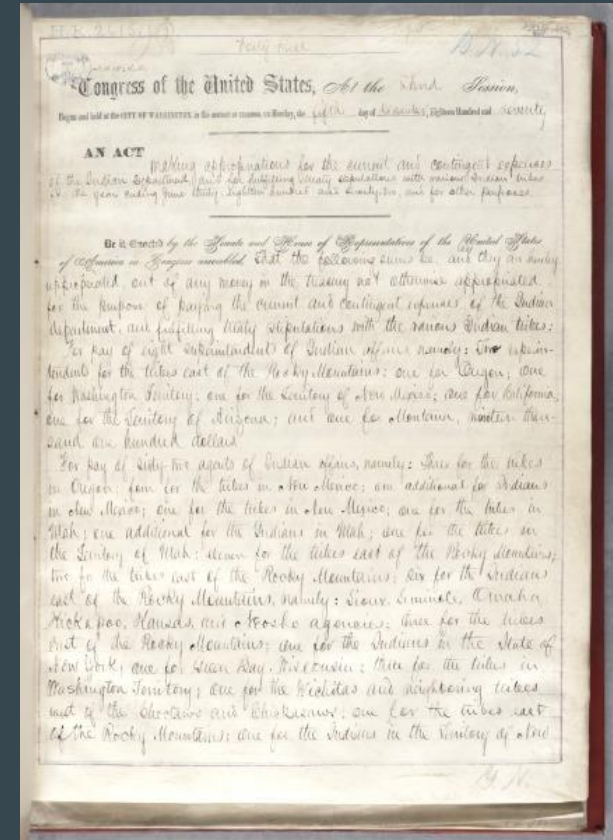 H.R. 2615
Congress of the United States, At the Third Session,
Begun and held at the CITY OF WASHINGTON, in the District of Columbia, on Monday, the fifth day of December, Eighteen Hundred and Seventy
AN ACT making appropriations for the current and contingent expenses
of the Indian Department, and for fulfilling treaty stipulations with various Indian tribes
for the year ending June thirty, eighteen hundred and seventy-two, and for other purposes.
Be it Enacted by the Senate and House of Representatives of the United States
of America in Congress assembled, That the following sums be, and they are hereby
appropriated, out of any money in the treasury not otherwise appropriated,
for the purpose of paying the current and contingent expenses of the Indian
department, and fulfilling treaty stipulations with the various Indian tribes:
For pay of eight superintendents of Indian affairs, namely: Two superin-
tendents for the tribes east of the Rocky Mountains; one for Oregon; one
for Washington Territory; one for the Territory of New Mexico; one for California;
one for the Territory of Arizona; and one for Montana, nineteen thou-
sand one hundred dollars
For pay of sixty-two agents of Indian affairs, namely: Three for the tribes
in Oregon; four for the tribes in New Mexico; one additional for Indians
in New Mexico; one for the tribes in New Mexico; one for the tribes in
Utah; one additional for the Indians in Utah; one for the tribes in
the Territory of Utah; eleven for the tribes east of the Rocky Mountains;
two for the tribes east of the Rocky Mountains; six for the Indians
east of the Rocky Mountains, namely: Sioux, Seminole, Omaha
Kickapoo, Kansas, and Neosho agencies; three for the tribes
east of the Rocky Mountains; one for the Indians in the State of
New York; one for Green Bay, Wisconsin; three for the tribes in
Washington Territory; one for the Wichitas and neighboring tribes
west of the Choctaws and Chickasaws; one for the tribes east
of the Rocky Mountains; one for the Indians in the Territory of New